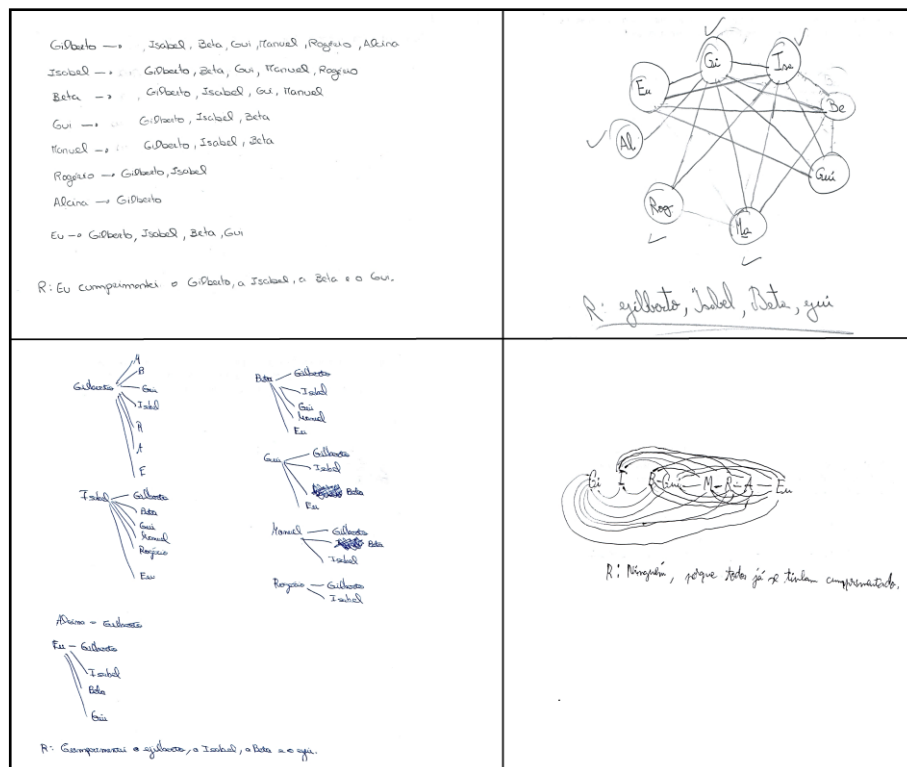 Gilberto → Isabel, Beta, Gui, Manuel, Rogério, Alcina
Isabel → Gilberto, Beta, Gui, Manuel, Rogério
Beta → Gilberto, Isabel, Gui, Manuel
Gui → Gilberto, Isabel, Beta
Manuel → Gilberto, Isabel, Beta
Rogério → Gilberto, Isabel
Alcina → Gilberto
Eu → Gilberto, Isabel, Beta, Gui
R: Eu cumprimentei o Gilberto, a Isabel, a Beta e o Gui.
Gi
Isa
Eu
Be
Al
Gui
Rog
Ma
R: Gilberto, Isabel, Beta, gui
Gilberto
M
B
Gui
Isabel
R
A
E
Isabel
Gilberto
Beta
Gui
Manuel
Rogério
Eu
Alcina - Gilberto
Eu - Gilberto
Isabel
Beta
Gui
Beta
Gilberto
Isabel
Gui
Manuel
Eu
Gui
Gilberto
Isabel
Beta
Eu
Manuel
Gilberto
Beta
Isabel
Rogério
Gilberto
Isabel
R: Cumprimentei o gilberto, a Isabel, a Beta e o gui.
Gi I B - Gui - M - R - A - Eu
R: Ninguém, porque todos já se tinham cumprimentado.